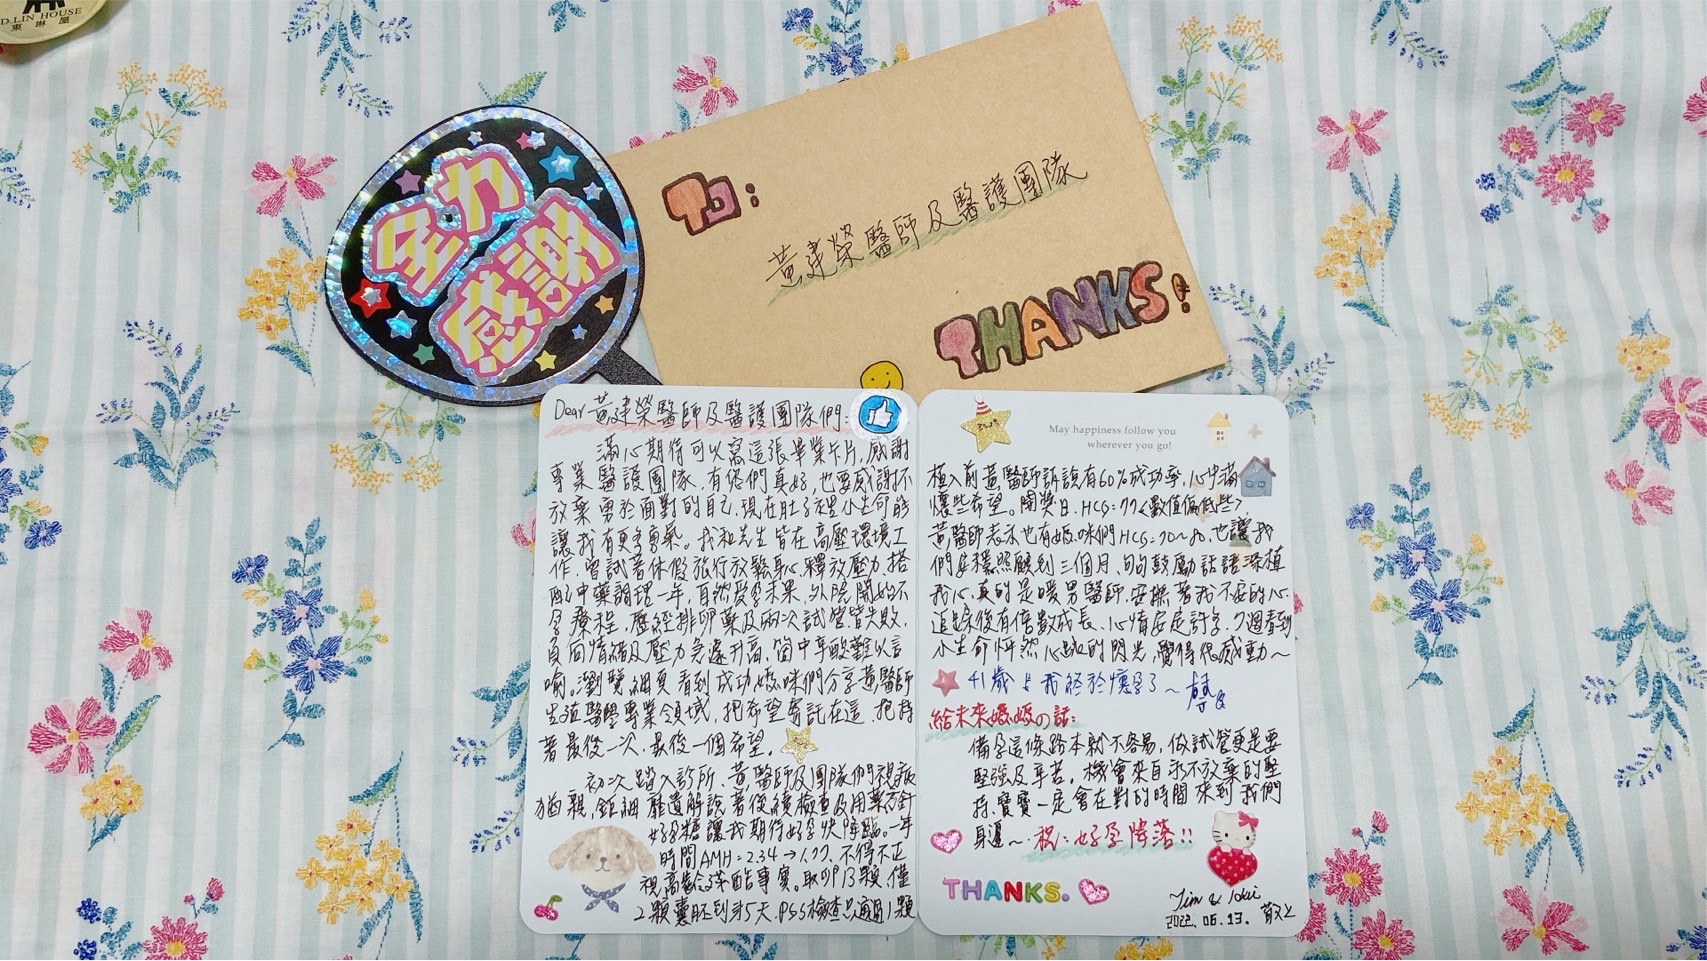 D.LIN HOUSE
東琳屋
全力
感謝
To:
黃建榮醫師及醫護團隊
THANKS!
Dear 黃建榮醫師及醫護團隊們:
滿心期待可以寫這張畢業卡片,感謝
專業醫護團隊,有您們真好,也要感謝不
放棄勇於面對的自己,現在肚子裡小生命能
讓我有更多勇氣。我和先生皆在高壓環境工
作,嘗試著休假旅行放鬆身心、釋放壓力,搭
配中藥調理一年,自然受孕未果,外院開始不
孕療程,歷經排卵藥及兩次試管皆失敗,
負面情緒及壓力急遽升高,箇中辛酸難以言
喻。瀏覽網頁看到成功媽咪們分享黃醫師
生殖醫學專業領域,把希望寄託在這,抱持
著最後一次,最後一個希望。
初次踏入診所,黃醫師及團隊們視病
猶親,鉅細靡遺解說著後續檢查及用藥方針
好孕糖讓我期待好孕快降臨。一年
時間AMH=2.34→1.77,不得不正
視高齡殘酷事實。取卵13顆,僅
2顆囊胚到第5天,PGS檢查只通過1顆
May happiness follow you
wherever you go!
植入前黃醫師訴說有60%成功率,心中滿
懷些希望。開獎日,HCG=77<數值偏低些>,
黃醫師表示也有媽咪們HCG=70~80,也讓我
們安穩照顧到三個月,句句鼓勵話語深植
我心,真的是暖男醫師,安撫著我不安的心。
追蹤後有倍數成長,心情安定許多,7週看到
小生命怦然心跳的閃光,覺得很感動~
41歲的我終於懷孕了~
給未來媽媽の話:
備孕這條路本就不容易,做試管更是要
堅強及辛苦。機會來自永不放棄的堅
持,寶寶一定會在對的時間來到我們
身邊~ 祝:好孕降落!!
THANKS.
2022.06.13. 敬上